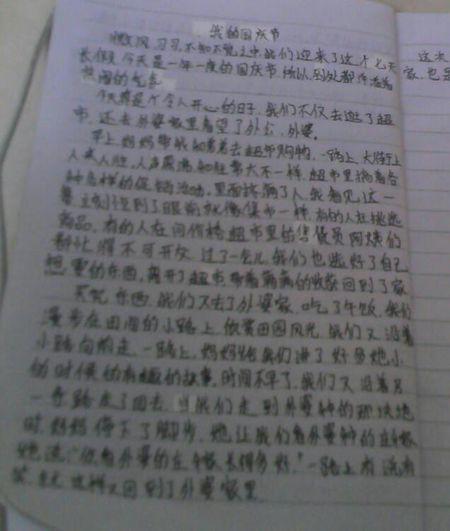 我的国庆节
微风习习,不知不觉之中我们迎来了这个七天
长假,今天是一年一度的国庆节,所以到处都洋溢着
热闹的气氛
今天真是个令人开心的日子,我们不仅去逛了超
市,还去外婆家里看望了外公,外婆。
早上妈妈带我和弟弟去超市购物,一路上,大街上
人来人往,人声鼎沸,和往常大不一样,超市里搞着各
种各样的促销活动,里面挤满了人,我看见这一
幕,立刻想到了眼前就像集市一样,有的人在挑选
商品,有的人在问价格,超市里的售货员阿姨们
都忙得不可开交,过了一会儿,我们也选好了自己
想要的东西,离开了超市,带着满满的收获回到了家
买完东西,我们又去了外婆家,吃了午饭,我们
漫步在田间的小路上,欣赏田园风光,我们又沿着
小路向前走,一路上,妈妈给我们讲了好多她小
的时候的有趣的故事,时间不早了,我们又沿着另
一条路走了回去,当我们走到外婆种的那块地
时,妈妈停下了脚步,她让我们看外婆种的
她说:“你看外婆的 长得多好,”一路上有说有
笑,就这样又回到了外婆家里
这次
家,也是